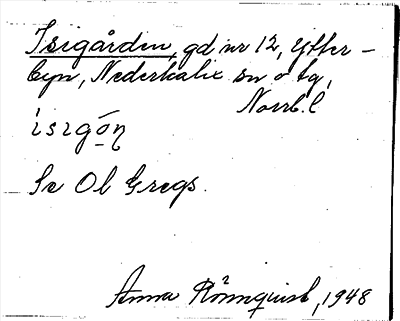 Isigården, gd nr 12, Ytter-
byn, Nederkalix sn o tg,
Norrb. l
isigo̱ꞑ
Se Ol Gregs.
Anna Rönnquist, 1948